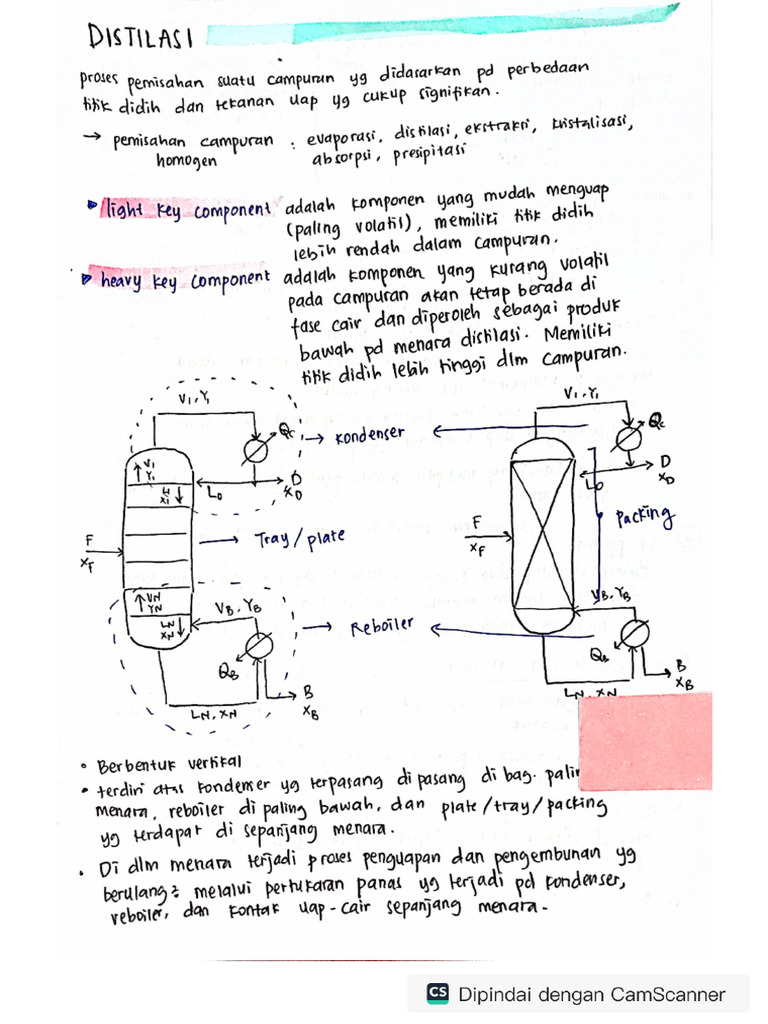 DISTILASI
proses pemisahan suatu campuran yg didasarkan pd perbedaan
titik didih dan tekanan uap yg cukup signifikan.
→ pemisahan campuran : evaporasi, distilasi, ekstraksi, kristalisasi,
homogen absorpsi, presipitasi
light key component adalah komponen yang mudah menguap
(paling volatil), memiliki titik didih
lebih rendah dalam campuran.
heavy key component adalah komponen yang kurang volatil
pada campuran akan tetap berada di
fase cair dan diperoleh sebagai produk
bawah pd menara distilasi. Memiliki
titik didih lebih tinggi dlm campuran.
V1, Y1
Qc
→ kondenser
V1
Y1
L1
X1
L0
D
XD
F
XF
→ Tray/plate
VN
YN
LN
XN
VB, YB
→ Reboiler
QB
B
XB
LN, XN
V1, Y1
Qc
D
XD
L0
Packing
F
XF
VB, YB
QB
B
XB
LN, XN
• Berbentuk vertikal
• terdiri atas kondenser yg terpasang di pasang di bag.
menara, reboiler di paling bawah, dan plate/tray/packing
yg terdapat di sepanjang menara.
• Di dlm menara terjadi proses penguapan dan pengembunan yg
berulang2 melalui pertukaran panas yg terjadi pd kondenser,
reboiler, dan kontak uap-cair sepanjang menara.
CS Dipindai dengan CamScanner